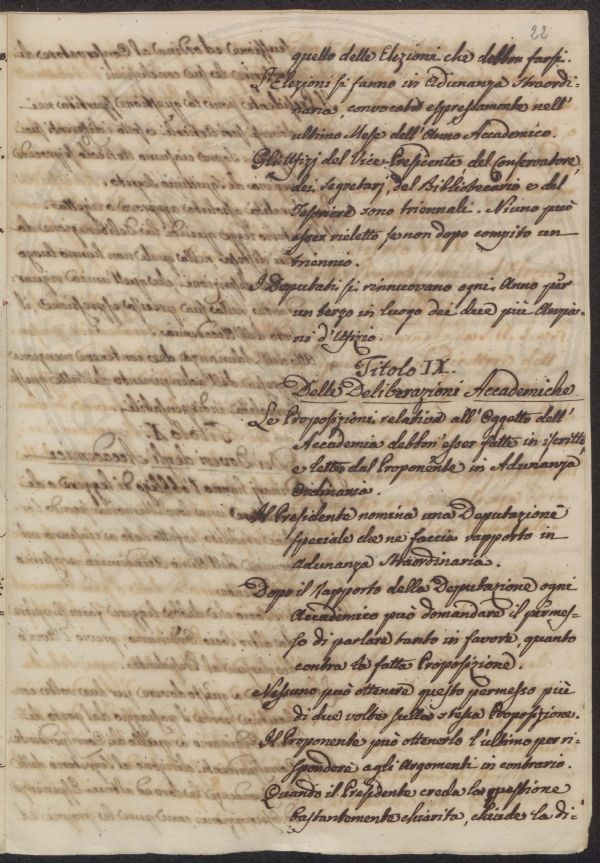 22
quello delle Elezioni che debbon farsi.
L'Elezioni si fanno in Adunanza Straordi-
naria, convocata espressamente nell'
ultimo Mese dell'Anno Accademico.
Gli Ufizj del Vice-Presidente, del Conservatore,
dei Segretarj, del Bibliotecario e del
Tesoriere sono triennali. Niuno può
esser rieletto se non dopo compito un
triennio.
I Deputati si rinnuovano ogni Anno per
un terzo in luogo dei due più Anzia-
ni d'Ufizio.
Titolo IX.
Delle Deliberazioni Accademiche
Le Proposizioni relative all'Oggetto dell'
Accademia debbon'esser fatte in iscritto
e lette dal Proponente in Adunanza
Ordinaria.
Il Presidente nomina una Deputazione
speciale che ne faccia rapporto in
Adunanza Straordinaria.
Dopo il rapporto della Deputazione ogni
Accademico può domandare il permes-
so di parlare tanto in favore, quanto
contra la fatta Proposizione.
Nessuno può ottenere questo permesso più
di due volte sulla stessa Proposizione.
Il Proponente può ottenerlo l'ultimo per ri-
spondere agli Argomenti in contrario.
Quando il Presidente creda la questione
bastantemente chiarita, chiude la di-